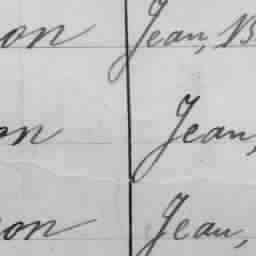 on Jean, B
on Jean,
on Jean,